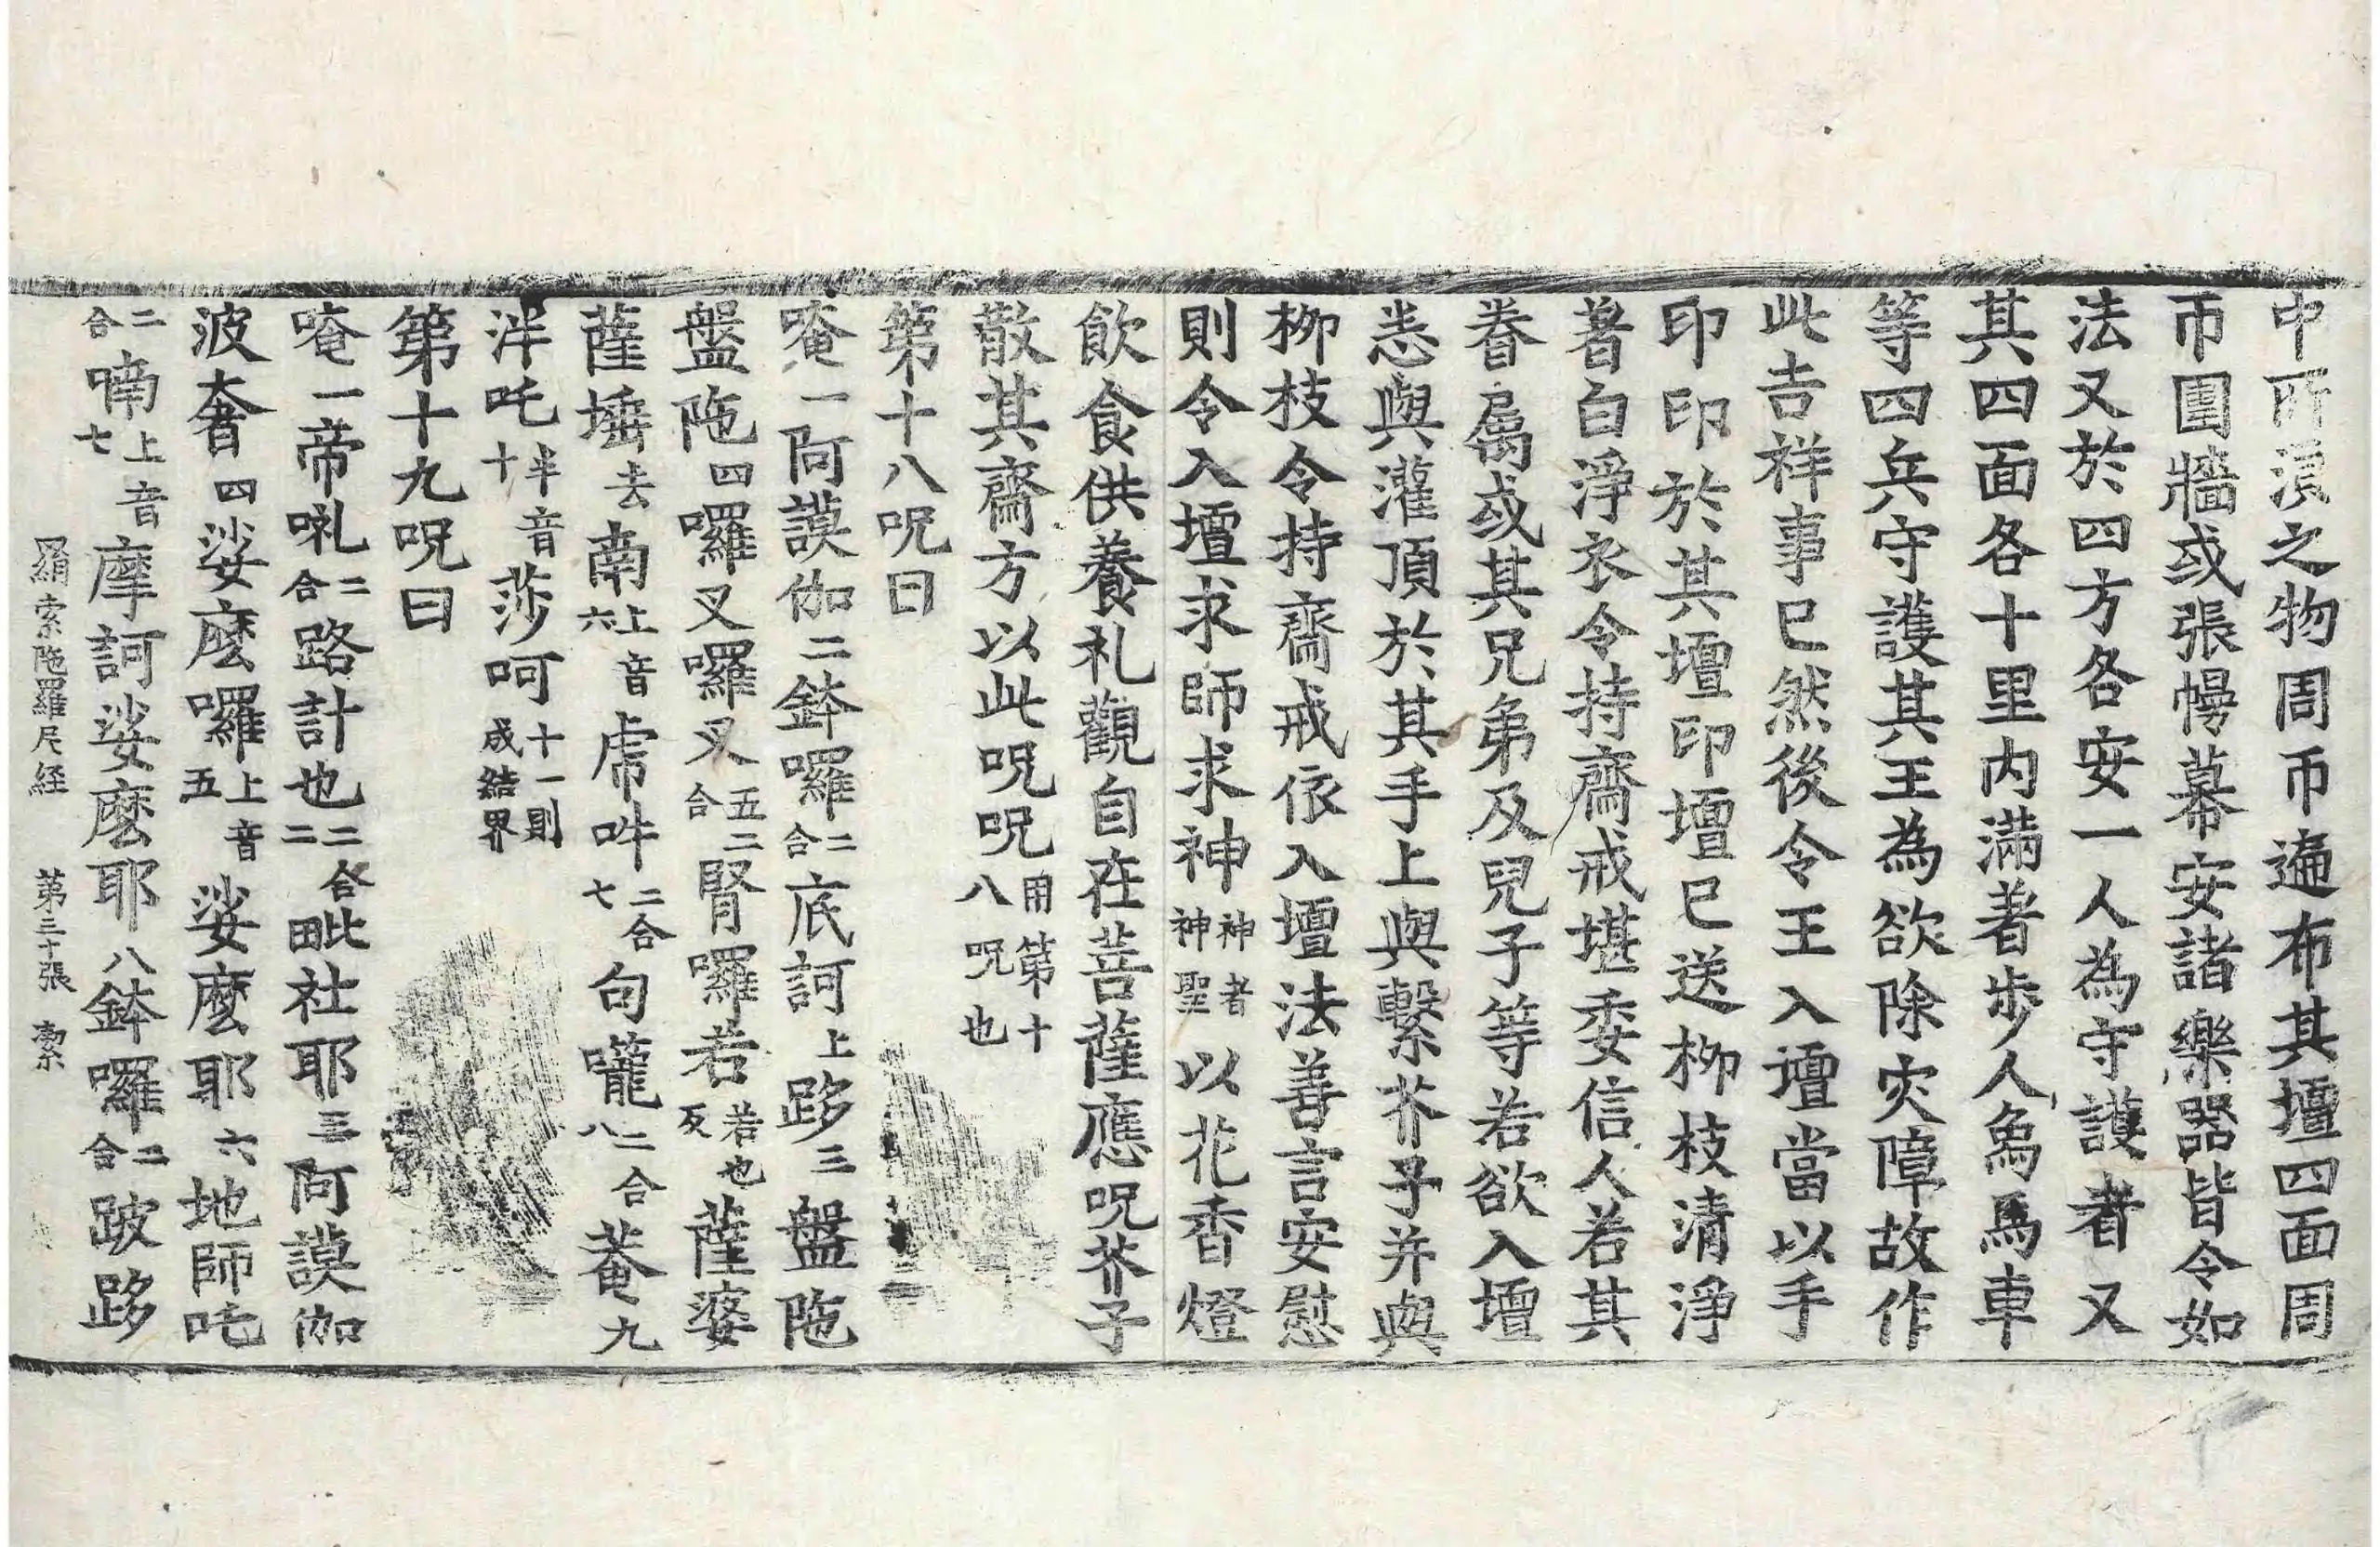 中所湏之物周帀遍布其壇四面周
帀圍牆或張幔幕安諸樂器皆令如
法又於四方各安一人為守護者又
其四面各十里內滿著步人象馬車
等四兵守護其王為欲除灾障故作
此吉祥事已然後令王入壇當以手
印印於其壇印壇已送柳枝清淨
著白淨衣令持齋戒堪委信人若其
眷屬或其兄弟及兒子等若欲入壇
悉與灌頂於其手上與繫芥子并與
柳枝令持齋戒依入壇法善言安慰
則令入壇求師求神神者神聖以花香燈
飲食供養礼觀自在菩薩應呪芥子
散其齋方以此呪呪用第十八呪也
第十八呪曰
唵一阿謨伽二鉢囉二合底訶上跢三盤陁
盤陁四囉叉囉叉五二合腎囉若若也反薩婆
薩埵去南上音六虎𤙖二合七句嚨二合八菴九
泮吒半音十莎呵十一則成結界
第十九呪曰
唵一帝㘑二合路計也二合二毗社耶三阿謨伽
波奢四娑麼囉上音五娑麼耶六地師吒
二合喃上音七摩訶娑麼耶八鉢囉二合跛跢
羂索陁羅尼経 第三十張 索